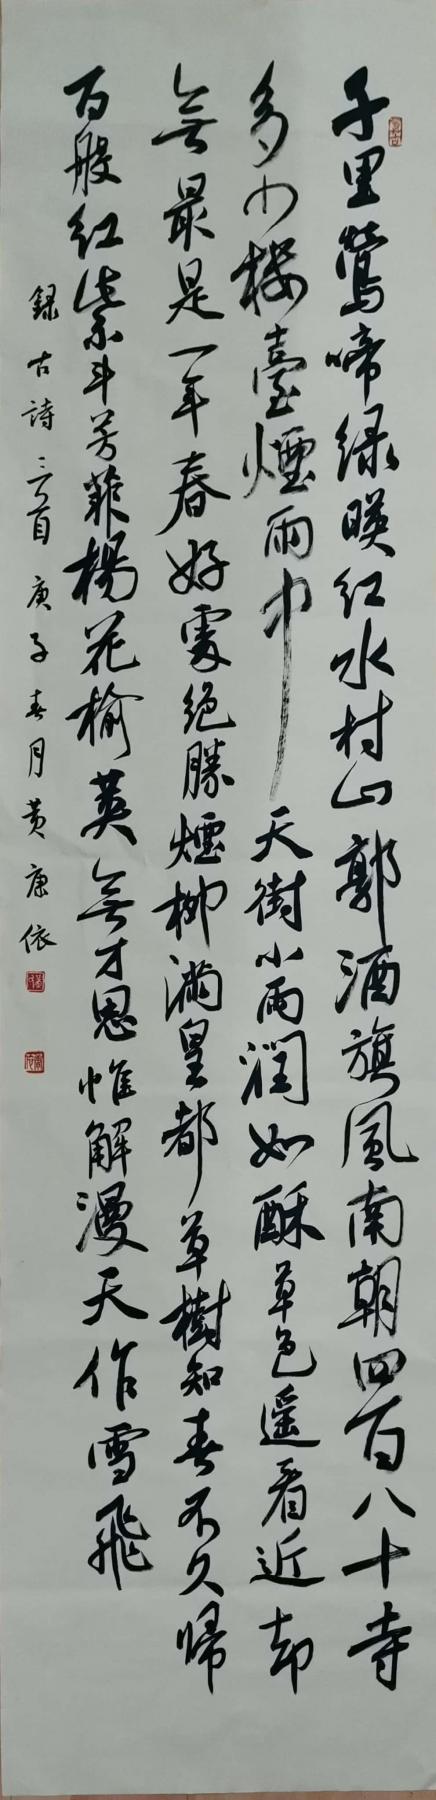 千里鶯啼绿暎红水村山郭酒旗風南朝四百八十寺
多少樓臺煙雨中天街小雨潤如酥草色遥看近却
無最是一年春好處絶勝煙柳滿皇都草樹知春不久歸
百般红紫斗芳菲楊花榆莢無才思惟解漫天作雪飛
録古詩三首庚子春月黄康依